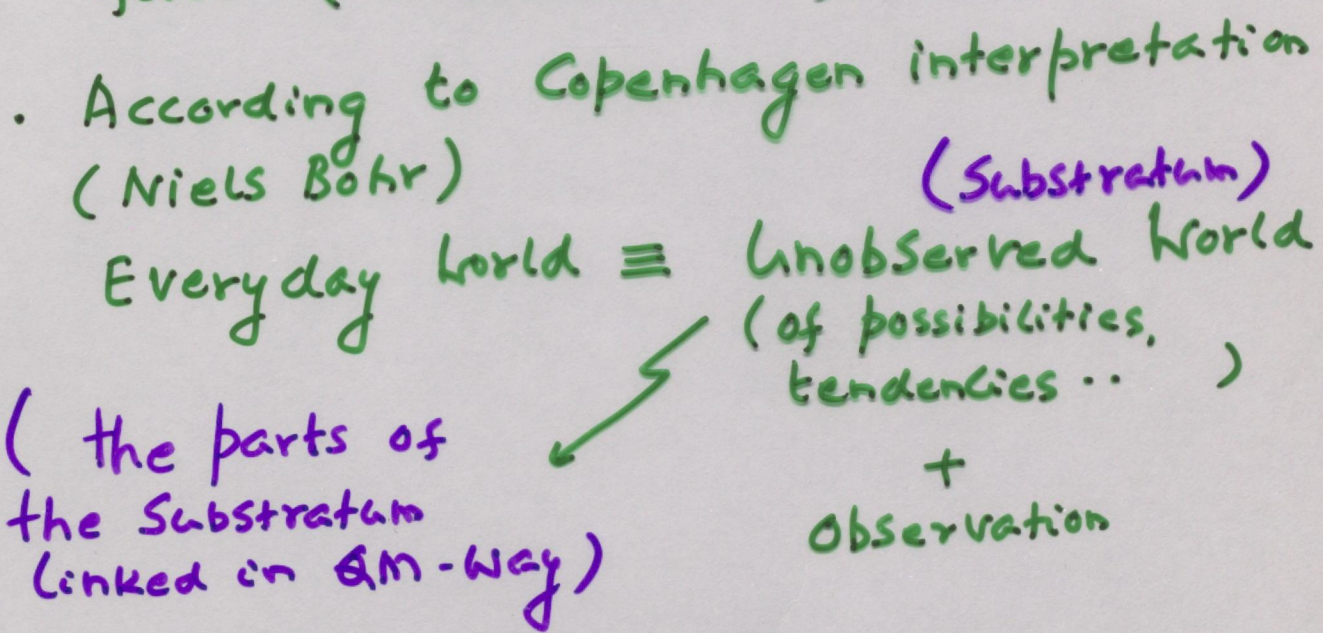 . According to Copenhagen interpretation
(Niels Bohr)
(Substratum)
Everyday World ≡ Unobserved World
(of possibilities,
tendencies .. )
+
Observation
(the parts of
the Substratum
linked in QM-Way)